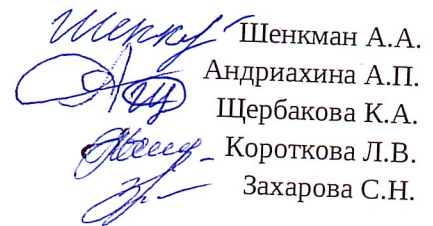 Шенкман А.А.
Андриахина А.П.
Щербакова К.А.
Короткова Л.В.
Захарова С.Н.